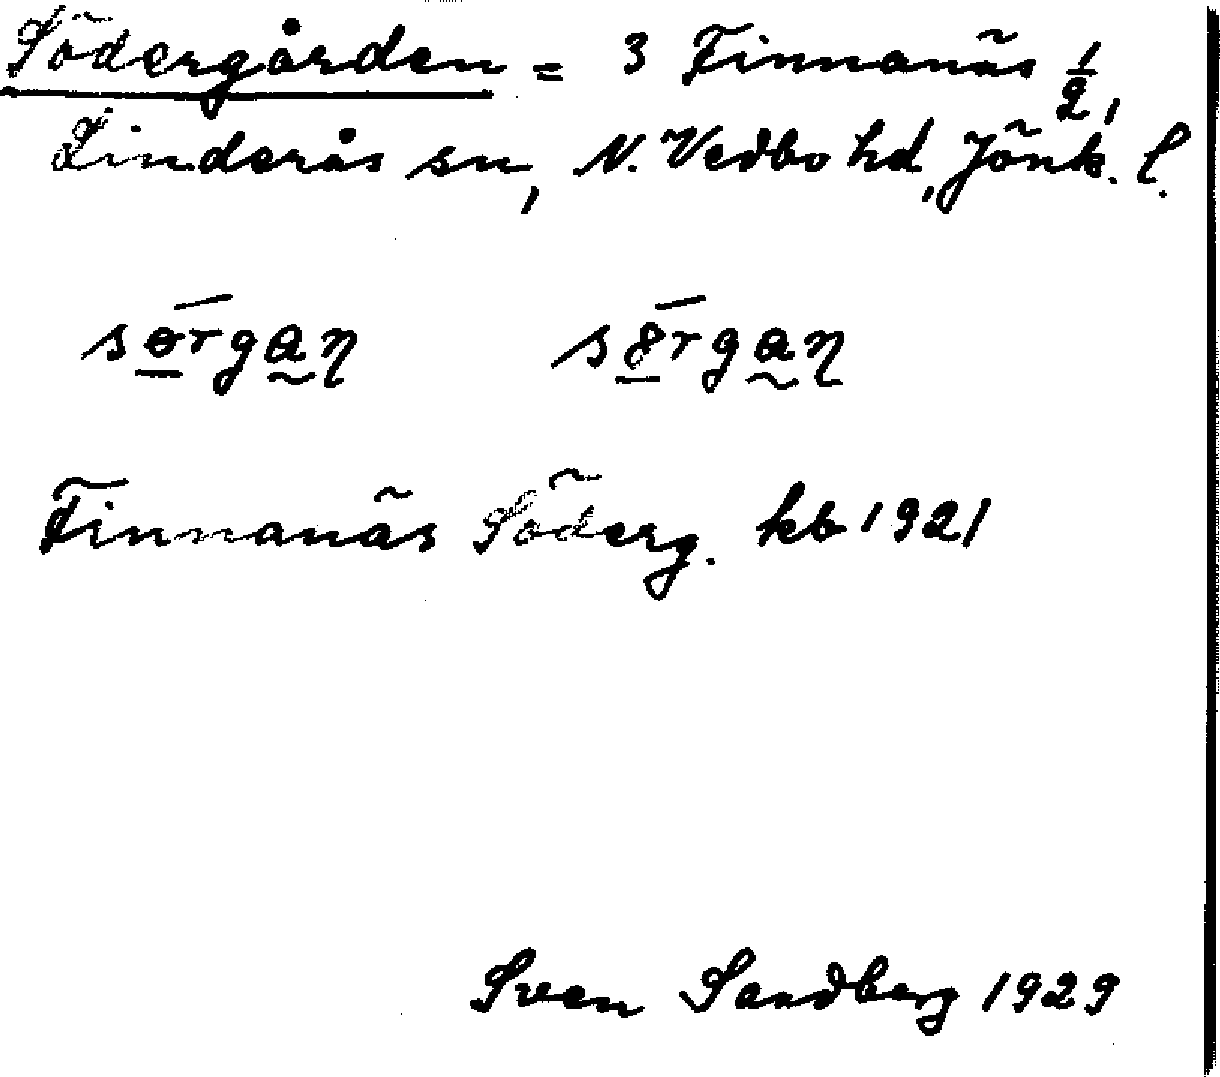 Södergården = 3 Finnanäs 1/2,
Linderås sn, N. Vedbo hd, Jönk. l.
sɵrgaŋ s8rgaŋ
Finnanäs Söderg. kb 1921
Sven Sandberg 1929